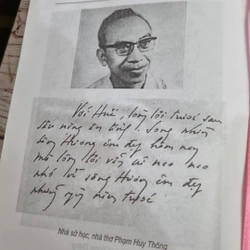 Với Huế, lòng tôi trước sau
sâu nặng ân tình! Song nhìn
sông Hương êm đẹp hôm nay
mà lòng tôi vẫn cứ nao nao
nhớ về sông Hương êm đẹp
những ngày năm trước
Nhà sử học, nhà thơ Phạm Huy Thông